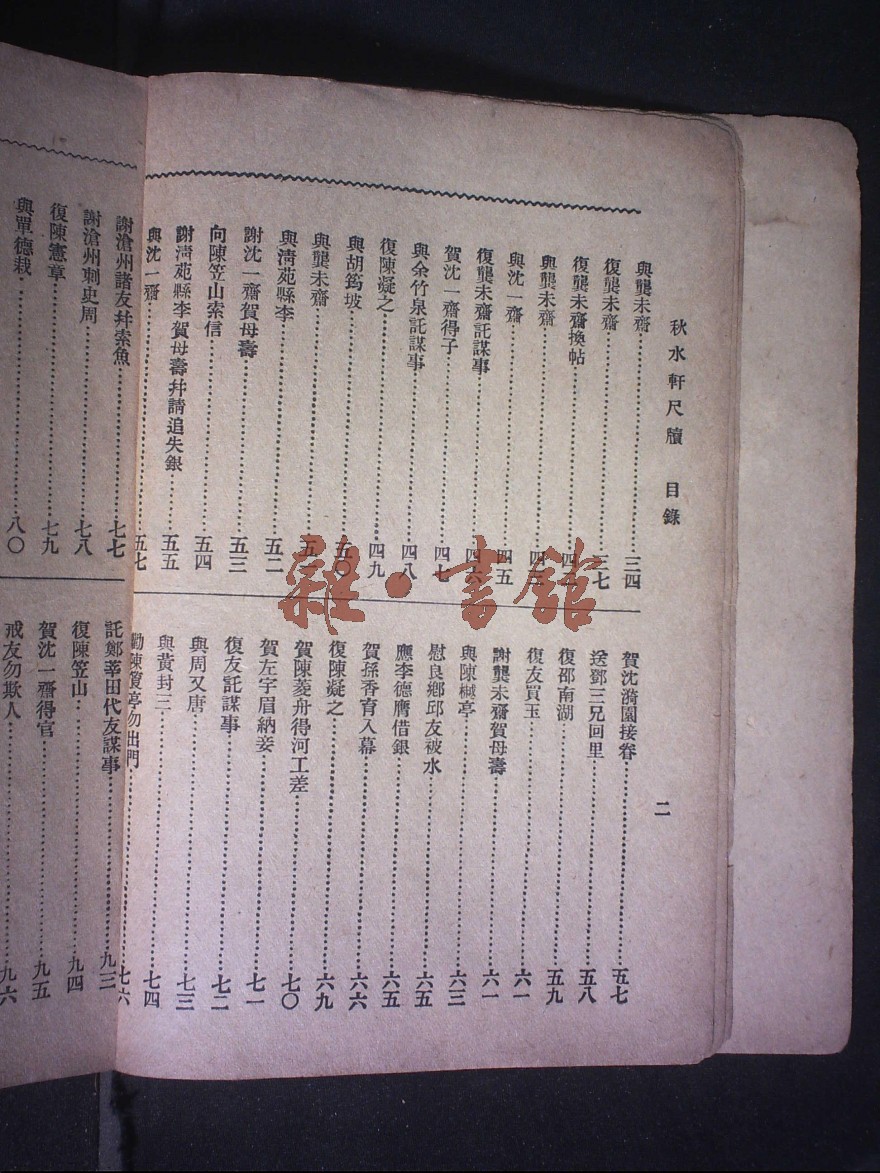 秋水軒尺牘 目錄
二
與龔未齋……三四
復龔未齋……三七
復龔未齋換帖……四
與龔未齋……四三
與沈一齋……四五
復龔未齋託謀事……四六
賀沈一齋得子……四七
與余竹泉託謀事……四八
復陳凝之……四九
與胡筠坡……五〇
與龔未齋……五
與淸苑縣李……五二
謝沈一齋賀母壽……五三
向陳笠山索信……五四
謝淸苑縣李賀母壽幷請追失銀……五五
與沈一齋……五七
賀沈漪園接眷……五七
送鄧三兄回里……五八
復邵南湖……五九
復友買玉……六一
謝龔未齋賀母壽……六一
與陳樾亭……六三
慰良鄕邱友被水……六五
應李德膺借銀……六五
賀孫香育入幕……六六
復陳凝之……六九
賀陳菱舟得河工差……七〇
賀左字眉納妾……七一
復友託謀事……七二
與周又唐……七三
與黃封三……七四
勸陳賓亭勿出門……七六
謝滄州諸友幷索魚……七七
謝滄州刺史周……七八
復陳憲章……七九
與單德栽……八〇
託鄭莘田代友謀事……九三
復陳笠山……九四
賀沈一齋得官……九五
戒友勿欺人……九六
雜·書館